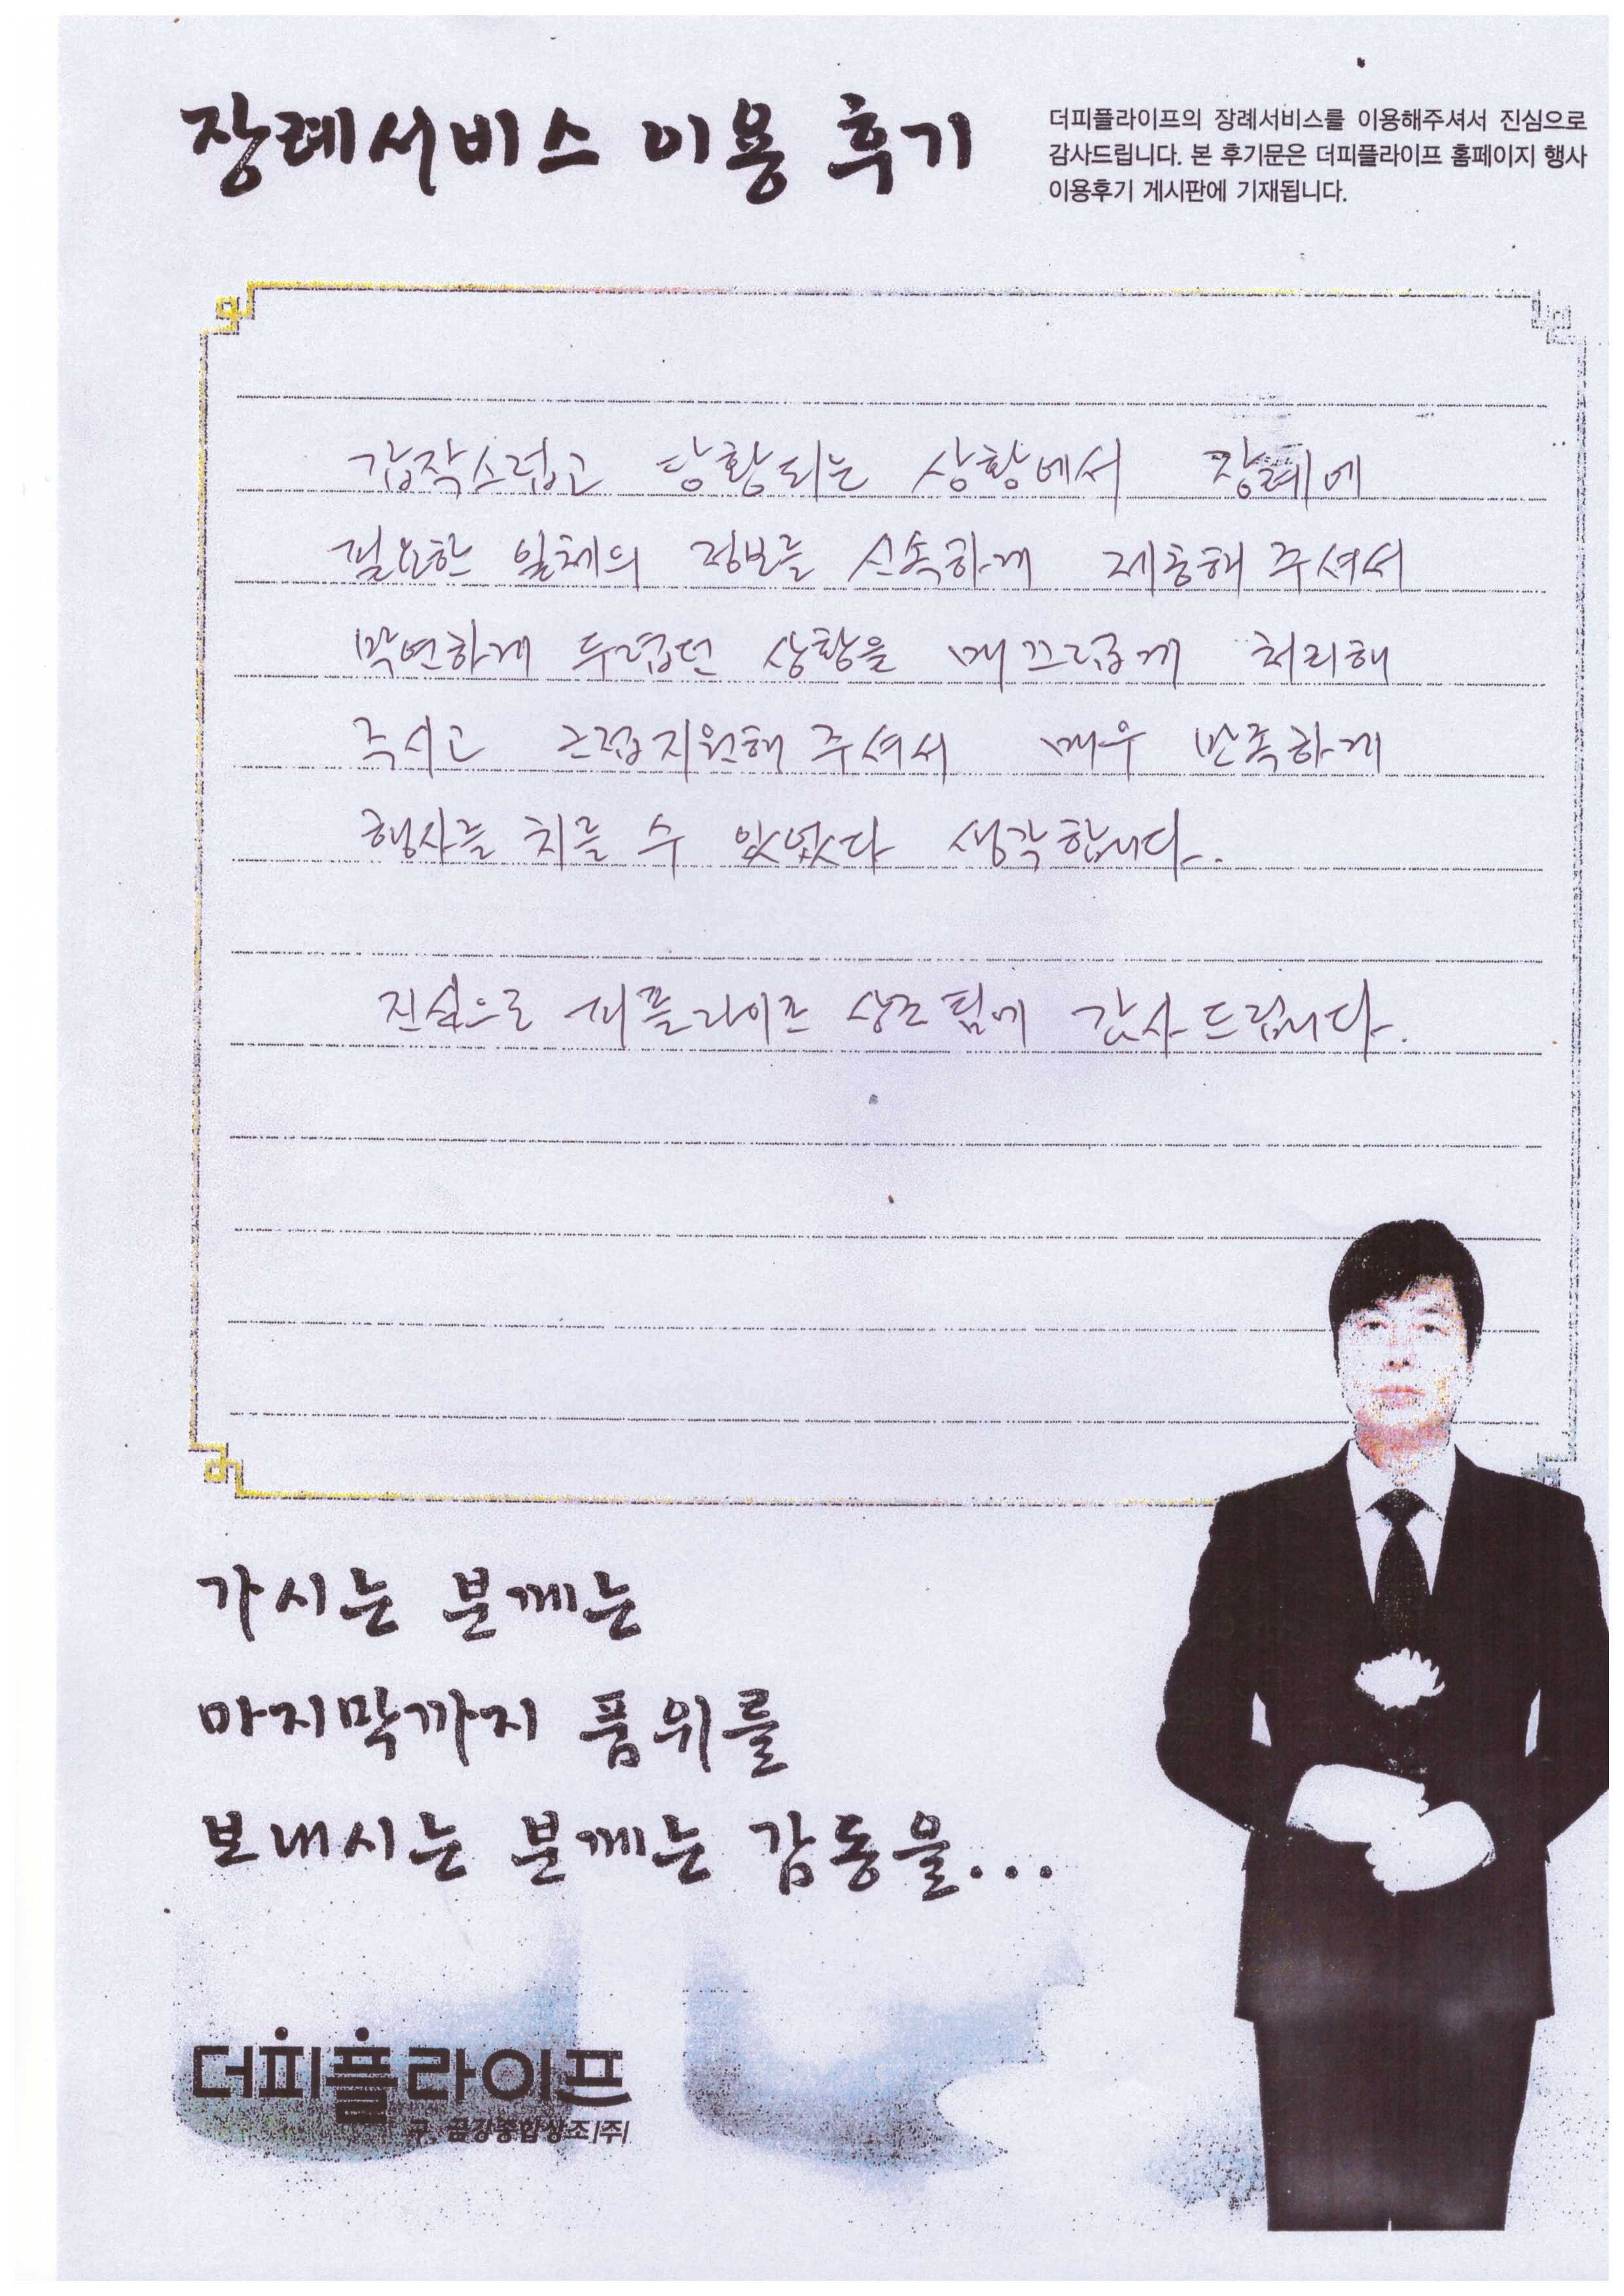 장례서비스 이용 후기
더피플라이프의 장례서비스를 이용해주셔서 진심으로
감사드립니다. 본 후기문은 더피플라이프 홈페이지 행사
이용후기 게시판에 기재됩니다.
갑작스럽고 당황되는 상황에서 장례에
필요한 일체의 정보를 신속하게 제공해 주셔서
막연하게 두렵던 상황을 매끄럽게 처리해
주시고 근접지원해 주셔서 매우 만족하게
행사를 치를 수 있었다 생각합니다.
진심으로 피플라이프 상조팀에 감사드립니다.
가시는 분께는
마지막까지 품위를
보내시는 분께는 감동을...
더피플라이프
구. 금강종합상조(주)